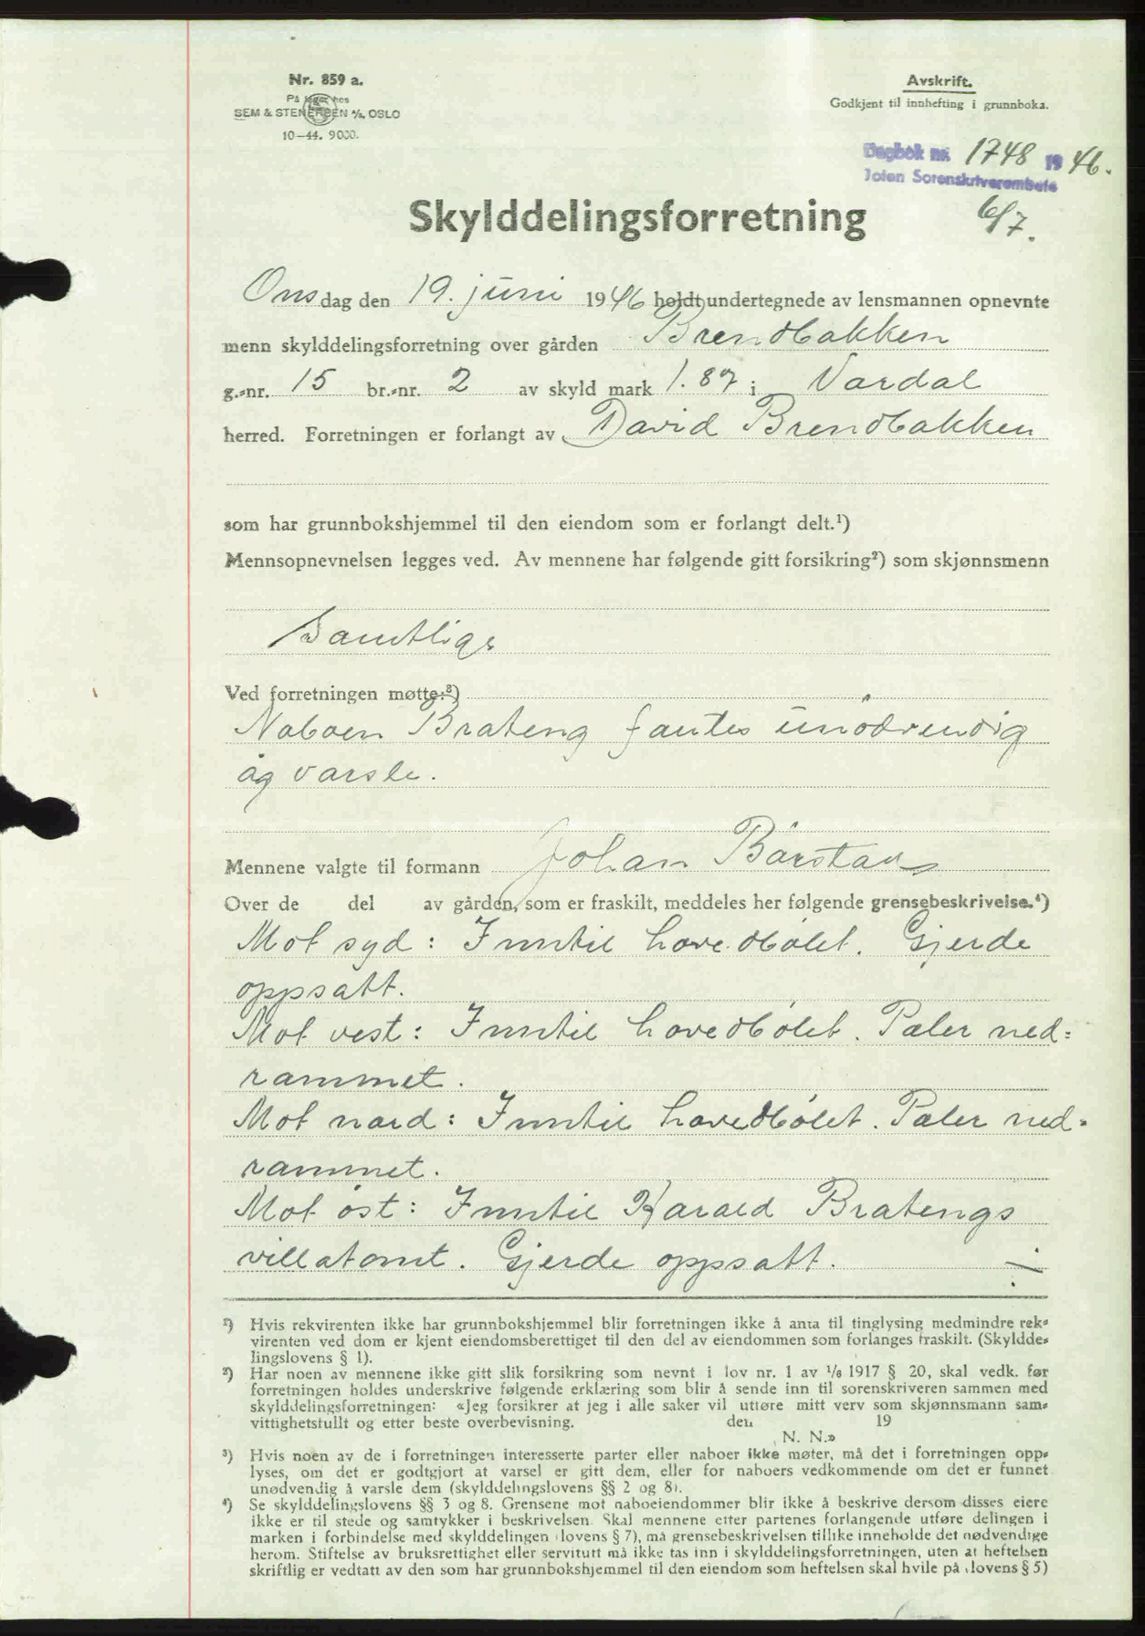 Nr. 859 a.
På lager hos
SEM & STENERSEN A/S, OSLO
10—44. 9000.
Avskrift.
Godkjent til innhefting i grunnboka.
Dagbok nr. 1748 1946.
Toten Sorenskriverembete
6/7.
Skylddelingsforretning
Onsdag den 19. juni 1946 holdt undertegnede av lensmannen opnevnte
menn skylddelingsforretning over gården Brendbakken
g.-nr. 15 br.-nr. 2 av skyld mark 1.87 i Vardal
herred. Forretningen er forlangt av David Brendbakken
som har grunnbokshjemmel til den eiendom som er forlangt delt.¹)
Mennsopnevnelsen legges ved. Av mennene har følgende gitt forsikring²) som skjønnsmenn
Samtlige
Ved forretningen møtte:³)
Naboen Brateng fantes unødvendig
åg varsle.
Mennene valgte til formann Johan Bårstad
Over de del av gården, som er fraskilt, meddeles her følgende grensebeskrivelse.⁴)
Mot syd: Inntil hovedbølet. Gjerde
oppsatt.
Mot vest: Inntil hovedbølet. Pæler ned=
rammet.
Mot nord: Inntil hovedbølet. Pæler ned=
rammet.
Mot øst: Inntil Harald Bratengs
villatomt. Gjerde oppsatt.
¹) Hvis rekvirenten ikke har grunnbokshjemmel blir forretningen ikke å anta til tinglysing medmindre rek-
virenten ved dom er kjent eiendomsberettiget til den del av eiendommen som forlanges fraskilt. (Skyldde-
lingslovens § 1).
²) Har noen av mennene ikke gitt slik forsikring som nevnt i lov nr. 1 av 1/6 1917 § 20, skal vedk. før
forretningen holdes underskrive følgende erklæring som blir å sende inn til sorenskriveren sammen med
skylddelingsforretningen: «Jeg forsikrer at jeg i alle saker vil utføre mitt verv som skjønnsmann sam-
vittighetsfullt og etter beste overbevisning. den 19
N. N.»
³) Hvis noen av de i forretningen interesserte parter eller naboer ikke møter, må det i forretningen opp-
lyses, om det er godtgjort at varsel er gitt dem, eller for naboers vedkommende om det er funnet
unødvendig å varsle dem (skylddelingslovens §§ 2 og 8).
⁴) Se skylddelingslovens §§ 3 og 8. Grensene mot naboeiendommer blir ikke å beskrive dersom disses eiere
ikke er til stede og samtykker i beskrivelsen. Skal mennene etter partenes forlangende utføre delingen i
marken i forbindelse med skylddelingen (lovens § 7), må grensebeskrivelsen tillike inneholde det nødvendige
herom. Stiftelse av bruksrettighet eller servitutt må ikke tas inn i skylddelingsforretningen, uten at heftelsen
skriftlig er vedtatt av den som har grunnbokshjemmel til den eiendom som heftelsen skal hvile på (lovens § 5)